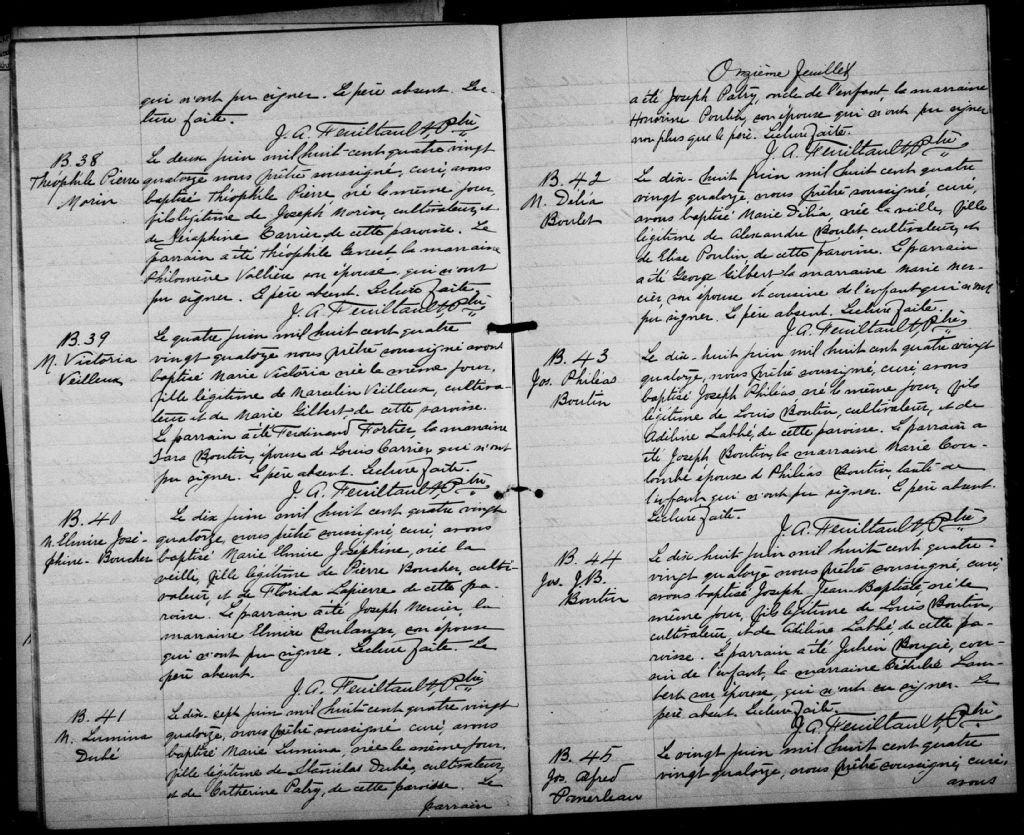 qui n'ont pu signer. Le père absent. Lec-
ture faite.
J. A. Feuiltault, Ptre
B. 38
Théophile Pierre
Morin
Le deux juin mil huit-cent quatre vingt
quatorze nous prêtre soussigné, curé, avons
baptisé Théophile Pierre, né le même jour,
fils légitime de Joseph Morin, cultivateur, et
de Séraphine Carrier de cette paroisse. Le
parrain a été Théophile la marraine
Philomène Vallière son épouse, qui n'ont
pu signer. Le père absent. Lecture faite.
J. A. Feuiltault, Ptre
B. 39
M. Victoria
Veilleux
Le quatre juin mil huit cent quatre
vingt quatorze nous prêtre soussigné avons
baptisé Marie Victoria née le même jour,
fille légitime de Marcelin Veilleux, cultiva-
teur et de Marie Gilbert de cette paroisse.
Le parrain a été Ferdinand Fortier, la marraine
Sara Boutin, épouse de Louis Carrier, qui n'ont
pu signer. Le père absent. Lecture faite.
J. A. Feuiltault, Ptre
B. 40
M. Elmire José-
phine Boucher
Le dix juin mil huit cent quatre vingt
quatorze, nous prêtre soussigné, curé, avons
baptisé Marie Elmire Joséphine, née la
veille, fille légitime de Pierre Boucher, culti-
vateur, et de Florida Lapierre de cette pa-
roisse. Le parrain a été Joseph Mercier, la
marraine Elmire Boulanger, son épouse
qui n'ont pu signer. Lecture faite. Le
père absent.
J. A. Feuiltault, Ptre
B. 41
M. Lumina
Dubé
Le dix-sept juin mil huit-cent quatre vingt
quatorze, nous prêtre soussigné curé, avons
baptisé Marie Lumina, née le même jour,
fille légitime de Stanislas Dubé, cultivateur,
et de Catherine Patry, de cette paroisse. Le
parrain
Onzième feuillet
a été Joseph Patry, oncle de l'enfant, la marraine
Honorine Poulin, son épouse qui n'ont pu signer
non plus que le père. Lecture faite.
J. A. Feuiltault, Ptre
B. 42
M. Délia
Boulet
Le dix-huit juin mil huit cent quatre
vingt quatorze, nous prêtre soussigné curé,
avons baptisé Marie Délia, née la veille, fille
légitime de Alexandre Boulet cultivateur, et
de Elise Poulin de cette paroisse. Le parrain
a été George Gilbert la marraine Marie Mer-
cier son épouse et cousine de l'enfant qui n'ont
pu signer. Le père absent. Lecture faite.
J. A. Feuiltault, Ptre
B. 43
Jos. Philéas
Boutin
Le dix-huit juin mil huit cent quatre vingt
quatorze, nous prêtre soussigné, curé, avons
baptisé Joseph Philéas né le même jour, fils
légitime de Louis Boutin, cultivateur, et de
Adiline Labbé, de cette paroisse. Le parrain a
été Joseph Boutin, la marraine Marie Cou-
lombe épouse d Philéas Boutin, tante de
l'enfant qui n'ont pu signer. Le père absent.
Lecture faite.
J. A. Feuiltault, Ptre
B. 44
Jos. J. B.
Boutin
Le dix-huit juin mil huit cent quatre-
vingt quatorze nous prêtre soussigné, curé,
avons baptisé Joseph Jean-Baptiste, né le
même jour, fils légitime de Louis Boutin,
cultivateur, et de Adiline Labbé de cette pa-
roisse. Le parrain a été Julien Bougie, cou-
sin de l'enfant, la marraine Lam-
bert son épouse, qui n'ont su signer. Le
père absent. Lecture faite.
J. A. Feuiltault, Ptre
B. 45
Jos. Alfred
Pomerleau
Le vingt juin mil huit cent quatre
vingt quatorze, nous prêtre soussigné, curé,
avons